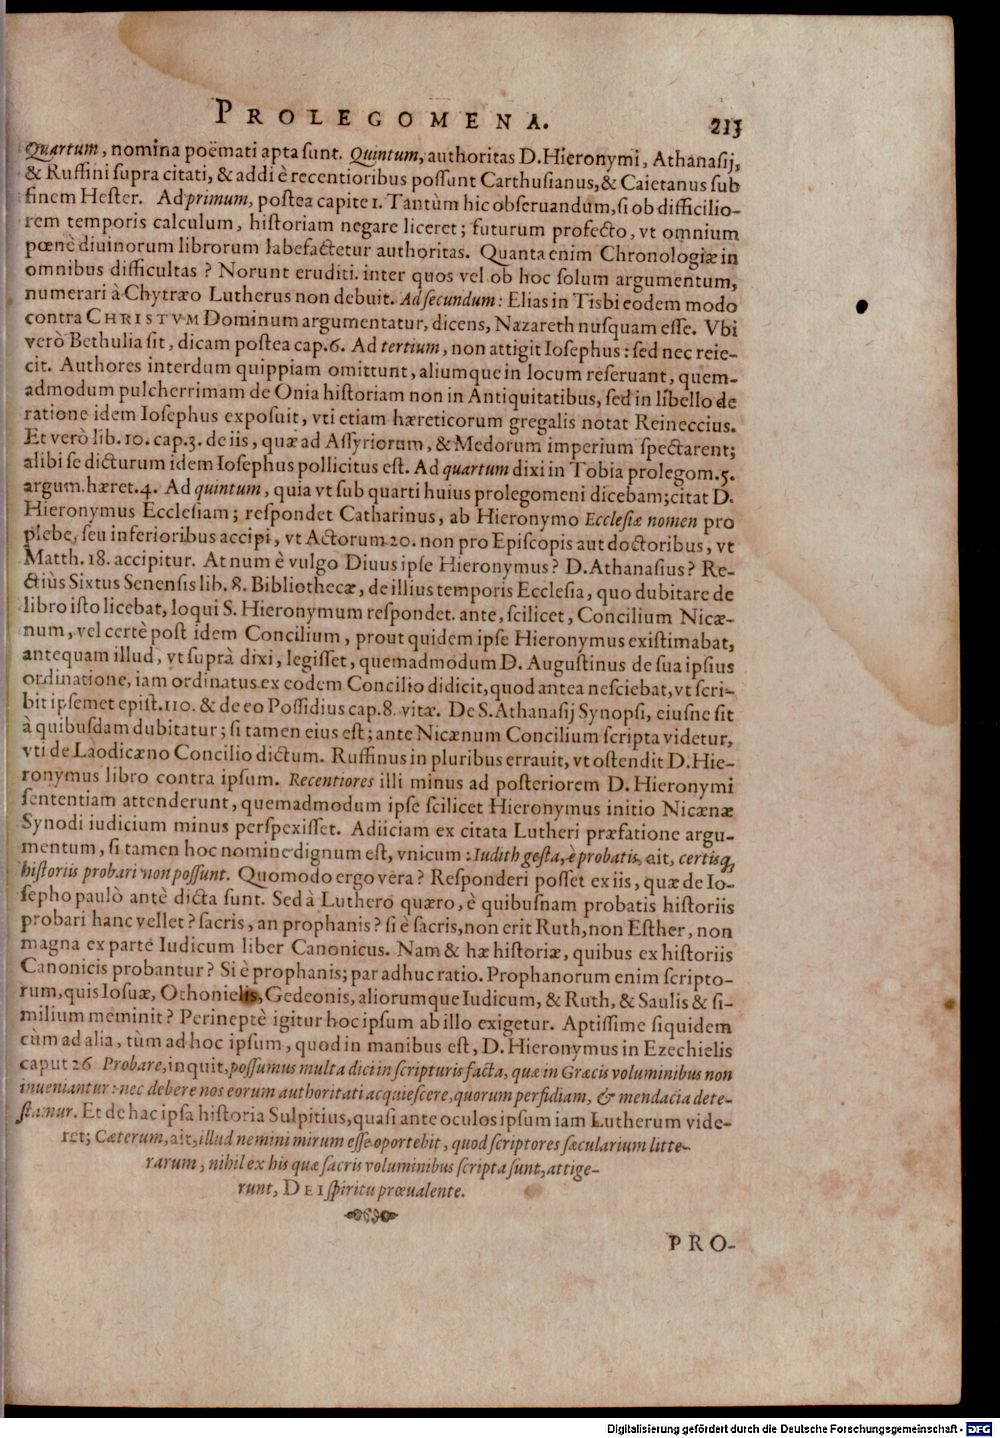 PROLEGOMENA. 213
Quartum, nomina poëmati apta sunt. Quintum, authoritas D. Hieronymi, Athanasij,
& Ruffini supra citati, & addi è recentioribus possunt Carthusianus, & Caietanus sub
finem Hester. Ad primum, postea capite 1. Tantùm hic obseruandum, si ob difficilio-
rem temporis calculum, historiam negare liceret; futurum profecto, vt omnium
pœnè diuinorum librorum labefactetur authoritas. Quanta enim Chronologiæ in
omnibus difficultas? Norunt eruditi. inter quos vel ob hoc solum argumentum,
numerari à Chytræo Lutherus non debuit. Ad secundum: Elias in Tisbi eodem modo
contra CHRISTVM Dominum argumentatur, dicens, Nazareth nusquam esse. Vbi
verò Bethulia sit, dicam postea cap. 6. Ad tertium, non attigit Iosephus: sed nec reie-
cit. Authores interdum quippiam omittunt, aliumque in locum reseruant, quem-
admodum pulcherrimam de Onia historiam non in Antiquitatibus, sed in libello de
ratione idem Iosephus exposuit, vti etiam hæreticorum gregalis notat Reineccius.
Et verò lib. 10. cap. 3. de iis, quæ ad Assyriorum, & Medorum imperium spectarent;
alibi se dicturum idem Iosephus pollicitus est. Ad quartum dixi in Tobia prolegom. 5.
argum. hæret. 4. Ad quintum, quia vt sub quarti huius prolegomeni dicebam; citat D.
Hieronymus Ecclesiam; respondet Catharinus, ab Hieronymo Ecclesiæ nomen pro
plebe, seu inferioribus accipi, vt Actorum 20. non pro Episcopis aut doctoribus, vt
Matth. 18. accipitur. At num è vulgo Diuus ipse Hieronymus? D. Athanasius? Re-
ctiùs Sixtus Senensis lib. 8. Bibliothecæ, de illius temporis Ecclesia, quo dubitare de
libro isto licebat, loqui S. Hieronymum respondet. ante, scilicet, Concilium Nicæ-
num, vel certè post idem Concilium, prout quidem ipse Hieronymus existimabat,
antequam illud, vt suprà dixi, legisset, quemadmodum D. Augustinus de sua ipsius
ordinatione, iam ordinatus ex eodem Concilio didicit, quod antea nesciebat, vt scri-
bit ipsemet epist. 110. & de eo Possidius cap. 8. vitæ. De S. Athanasij Synopsi, eiusne sit
à quibusdam dubitatur; si tamen eius est; ante Nicænum Concilium scripta videtur,
vti de Laodicæno Concilio dictum. Ruffinus in pluribus errauit, vt ostendit D. Hie-
ronymus libro contra ipsum. Recentiores illi minus ad posteriorem D. Hieronymi
sententiam attenderunt, quemadmodum ipse scilicet Hieronymus initio Nicænæ
Synodi iudicium minus perspexisset. Adiiciam ex citata Lutheri præfatione argu-
mentum, si tamen hoc nomine dignum est, vnicum: Iudith gesta, è probatis, ait, certisq́,
historiis probari non possunt. Quomodo ergo vera? Responderi posset ex iis, quæ de Io-
sepho paulò antè dicta sunt. Sed à Luthero quæro, è quibusnam probatis historiis
probari hanc vellet? sacris, an prophanis? si è sacris, non erit Ruth, non Esther, non
magna ex parte Iudicum liber Canonicus. Nam & hæ historiæ, quibus ex historiis
Canonicis probantur? Si è prophanis; par adhuc ratio. Prophanorum enim scripto-
rum, quis Iosuæ, Othonielis, Gedeonis, aliorumque Iudicum, & Ruth, & Saulis & si-
milium meminit? Perineptè igitur hoc ipsum ab illo exigetur. Aptissime siquidem
cùm ad alia, tùm ad hoc ipsum, quod in manibus est, D. Hieronymus in Ezechielis
caput 26 Probare, inquit, possumus multa dici in scripturis facta, quæ in Græcis voluminibus non
inueniantur: nec debere nos eorum authoritati acquiescere, quorum perfidiam, & mendacia dete-
stamur. Et de hac ipsa historia Sulpitius, quasi ante oculos ipsum iam Lutherum vide-
ret; Cæterum, ait, illud nemini mirum esse oportebit, quod scriptores sæcularium litte-
rarum, nihil ex his quæ sacris voluminibus scripta sunt, attige-
runt, DEI spiritu præualente.
PRO-
Digitalisierung gefördert durch die Deutsche Forschungsgemeinschaft - DFG